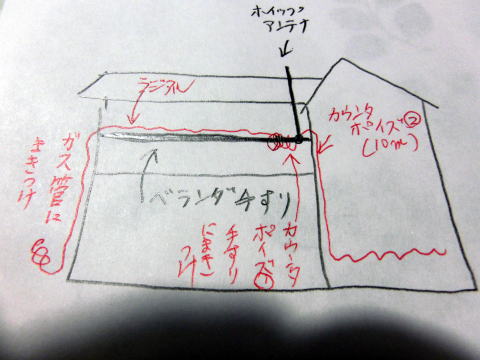 ホイップ
アンテナ
ラジアル
カウンタ
ポイズ②
(10m)
ガス管に
まきつけ
ベランダ手すり
カウンタ
ポイズ①
手すり
にまき
つけ